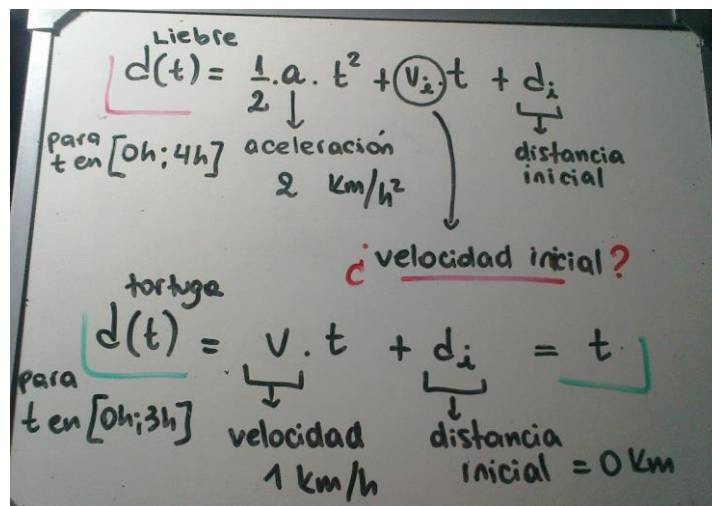 Liebre
d(t) = 1/2 . a . t² + vᵢ . t + dᵢ
para t en [0h; 4h]
aceleración
2 Km/h²
distancia inicial
¿velocidad inicial?
tortuga
d(t) = v . t + dᵢ = t
para t en [0h; 3h]
velocidad
1 Km/h
distancia
inicial = 0 Km